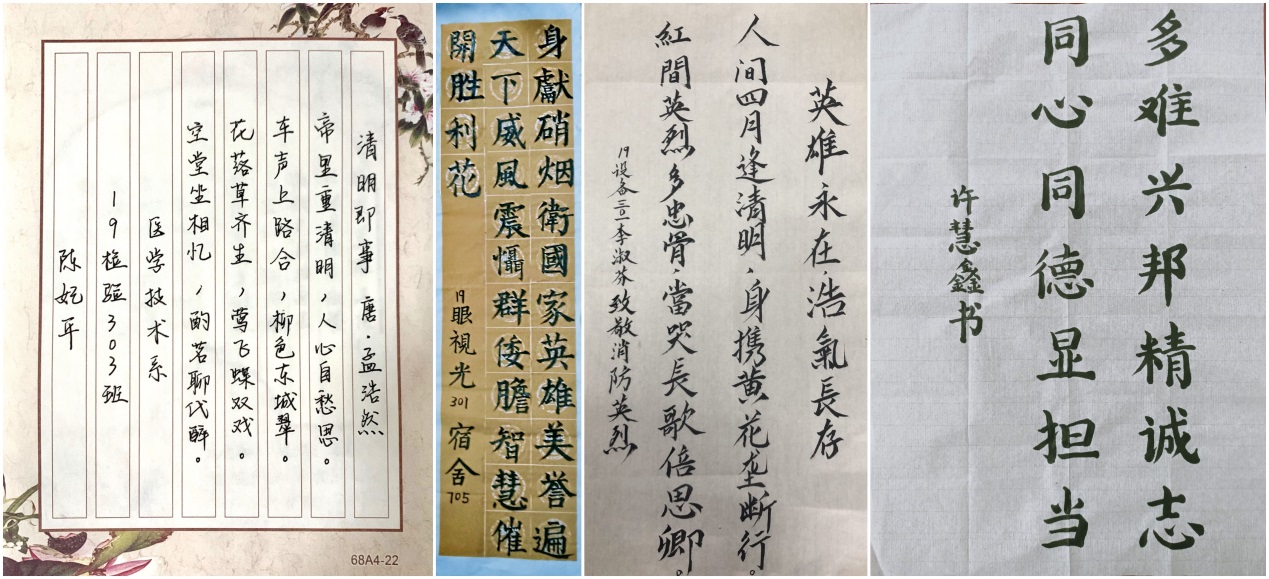 清明即事 唐·孟浩然
帝里重清明，人心自愁思。
车声上路合，柳色东城翠。
花落草齐生，莺飞蝶双戏。
空堂坐相忆，酌茗聊代醉。
医学技术系
19检验303班
陈妃平
68A4-22
身獻硝烟衛國家英雄美誉遍
天下威風震懾群倭膽智慧催
開胜利花
19眼視光301宿舍705
英雄永在，浩氣長存
人间四月逢清明，身携黄花坓断行。
紅間英烈多忠骨，當哭長歌倍思卿。
19设备三二李淑芬致敬消防英烈
多难兴邦精诚志
同心同德显担当
许慧鑫书